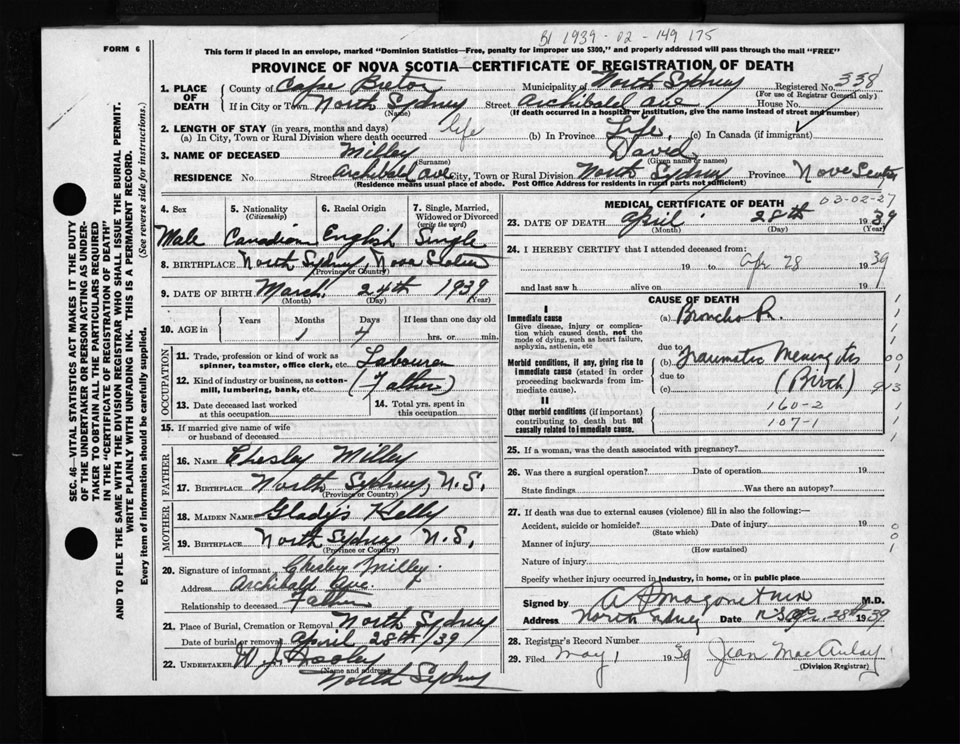 BI 1939 - 02 - 149 175
FORM 6
This form if placed in an envelope, marked "Dominion Statistics—Free, penalty for improper use $300," and properly addressed will pass through the mail "FREE"
PROVINCE OF NOVA SCOTIA—CERTIFICATE OF REGISTRATION OF DEATH
1. PLACE OF DEATH County of Cape Breton Municipality of North Sydney Registered No. 338
(For use of Registrar General only)
If in City or Town North Sydney Street Archibald Ave House No.
(Name) (If death occurred in a hospital or institution, give the name instead of street and number)
2. LENGTH OF STAY (in years, months and days)
(a) In City, Town or Rural Division where death occurred life (b) In Province Life (c) In Canada (if immigrant)
3. NAME OF DECEASED Milley David
(Surname) (Given name or names)
RESIDENCE No. Street Archibald Ave City, Town or Rural Division North Sydney Province Nova Scotia
(Residence means usual place of abode. Post Office Address for residents in rural parts not sufficient)
4. Sex 5. Nationality (Citizenship) 6. Racial Origin 7. Single, Married, Widowed or Divorced (write the word)
Male Canadian English Single
8. BIRTHPLACE North Sydney, Nova Scotia
(Province or Country)
9. DATE OF BIRTH March 24th 1939
(Month) (Day) (Year)
10. AGE in Years Months Days If less than one day old
1 4 hrs. or min.
OCCUPATION
11. Trade, profession or kind of work as spinner, teamster, office clerk, etc. Labourer
12. Kind of industry or business, as cotton-mill, lumbering, bank, etc. (Father)
13. Date deceased last worked at this occupation 14. Total yrs. spent in this occupation
15. If married give name of wife or husband of deceased
FATHER
16. NAME Chesley Milley
17. BIRTHPLACE North Sydney, N.S.
(Province or Country)
MOTHER
18. MAIDEN NAME Gladys Kelly
19. BIRTHPLACE North Sydney N.S.
(Province or Country)
20. Signature of informant Chesley Milley
Address Archibald Ave.
Relationship to deceased Father
21. Place of Burial, Cremation or Removal North Sydney
Date of burial or removal April 28th/39
22. UNDERTAKER W. J. Dooley
(Name and address)
North Sydney
MEDICAL CERTIFICATE OF DEATH 03-02-27
23. DATE OF DEATH April 28th 1939
(Month) (Day) (Year)
24. I HEREBY CERTIFY that I attended deceased from:
19 to Apr 28 1939
and last saw h alive on 19
CAUSE OF DEATH
I
Immediate cause (a) Broncho P.
Give disease, injury or complication which caused death, not the mode of dying, such as heart failure, asphyxia, asthenia, etc
due to
Morbid conditions, if any, giving rise to immediate cause (stated in order proceeding backwards from immediate cause). (b) Traumatic Meningitis
due to (Birth)
(c)
II
Other morbid conditions (if important) contributing to death but not causally related to immediate cause.
160-2
107-1
25. If a woman, was the death associated with pregnancy?
26. Was there a surgical operation? Date of operation 19
State findings Was there an autopsy?
27. If death was due to external causes (violence) fill in also the following:—
Accident, suicide or homicide? Date of injury 19
(State which)
Manner of injury
(How sustained)
Nature of injury
Specify whether injury occurred in industry, in home, or in public place
Signed by M.D.
Address North Sydney Date Apr. 28th 1939
28. Registrar's Record Number
29. Filed May 1 1939 Jean MacAulay
(Division Registrar)
SEC. 46—VITAL STATISTICS ACT MAKES IT THE DUTY
OF THE UNDERTAKER OR PERSON ACTING AS UNDER-
TAKER TO OBTAIN ALL THE PARTICULARS REQUIRED
IN THE "CERTIFICATE OF REGISTRATION OF DEATH"
AND TO FILE THE SAME WITH THE DIVISION REGISTRAR WHO SHALL ISSUE THE BURIAL PERMIT.
WRITE PLAINLY WITH UNFADING INK. THIS IS A PERMANENT RECORD.
Every item of information should be carefully supplied. (See reverse side for instructions.)